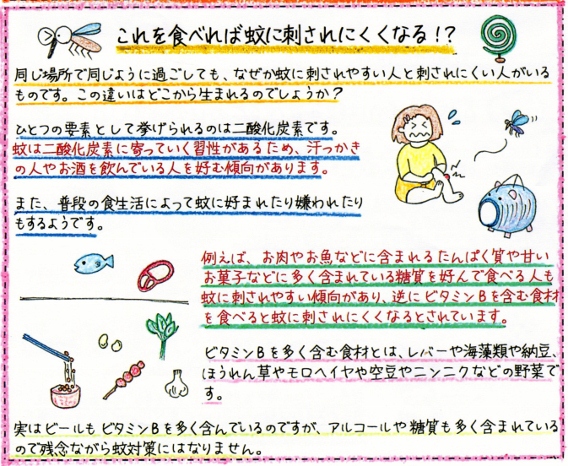 これを食べれば蚊に刺されにくくなる!?
同じ場所で同じように過ごしても、なぜか蚊に刺されやすい人と刺されにくい人がいる
ものです。この違いはどこから生まれるのでしょうか?
ひとつの要素として挙げられるのは二酸化炭素です。
蚊は二酸化炭素に寄っていく習性があるため、汗っかき
の人やお酒を飲んでいる人を好む傾向があります。
また、普段の食生活によって蚊に好まれたり嫌われたり
もするようです。
例えば、お肉やお魚などに含まれるたんぱく質や甘い
お菓子などに多く含まれている糖質を好んで食べる人も
蚊に刺されやすい傾向があり、逆にビタミンBを含む食材
を食べると蚊に刺されにくくなるとされています。
ビタミンBを多く含む食材とは、レバーや海藻類や納豆、
ほうれん草やモロヘイヤや空豆やニンニクなどの野菜で
す。
実はビールもビタミンBを多く含んでいるのですが、アルコールや糖質も多く含まれている
ので残念ながら蚊対策にはなりません。